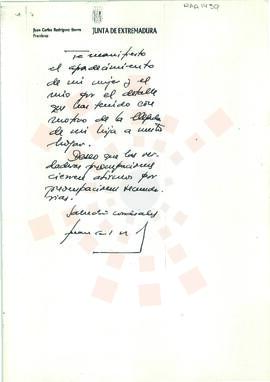 RAA1439
Juan Carlos Rodríguez Ibarra
Presidente
JUNTA DE EXTREMADURA
Te manifiesto
el agradecimiento
de mi mujer y el
mío por el detalle
que has tenido con
motivo de la llegada
de mi hija a nuestro
hogar.
Deseo que las ver
daderas preocupaciones
por
preocupaciones secunda
rias.
Saludos cordiales